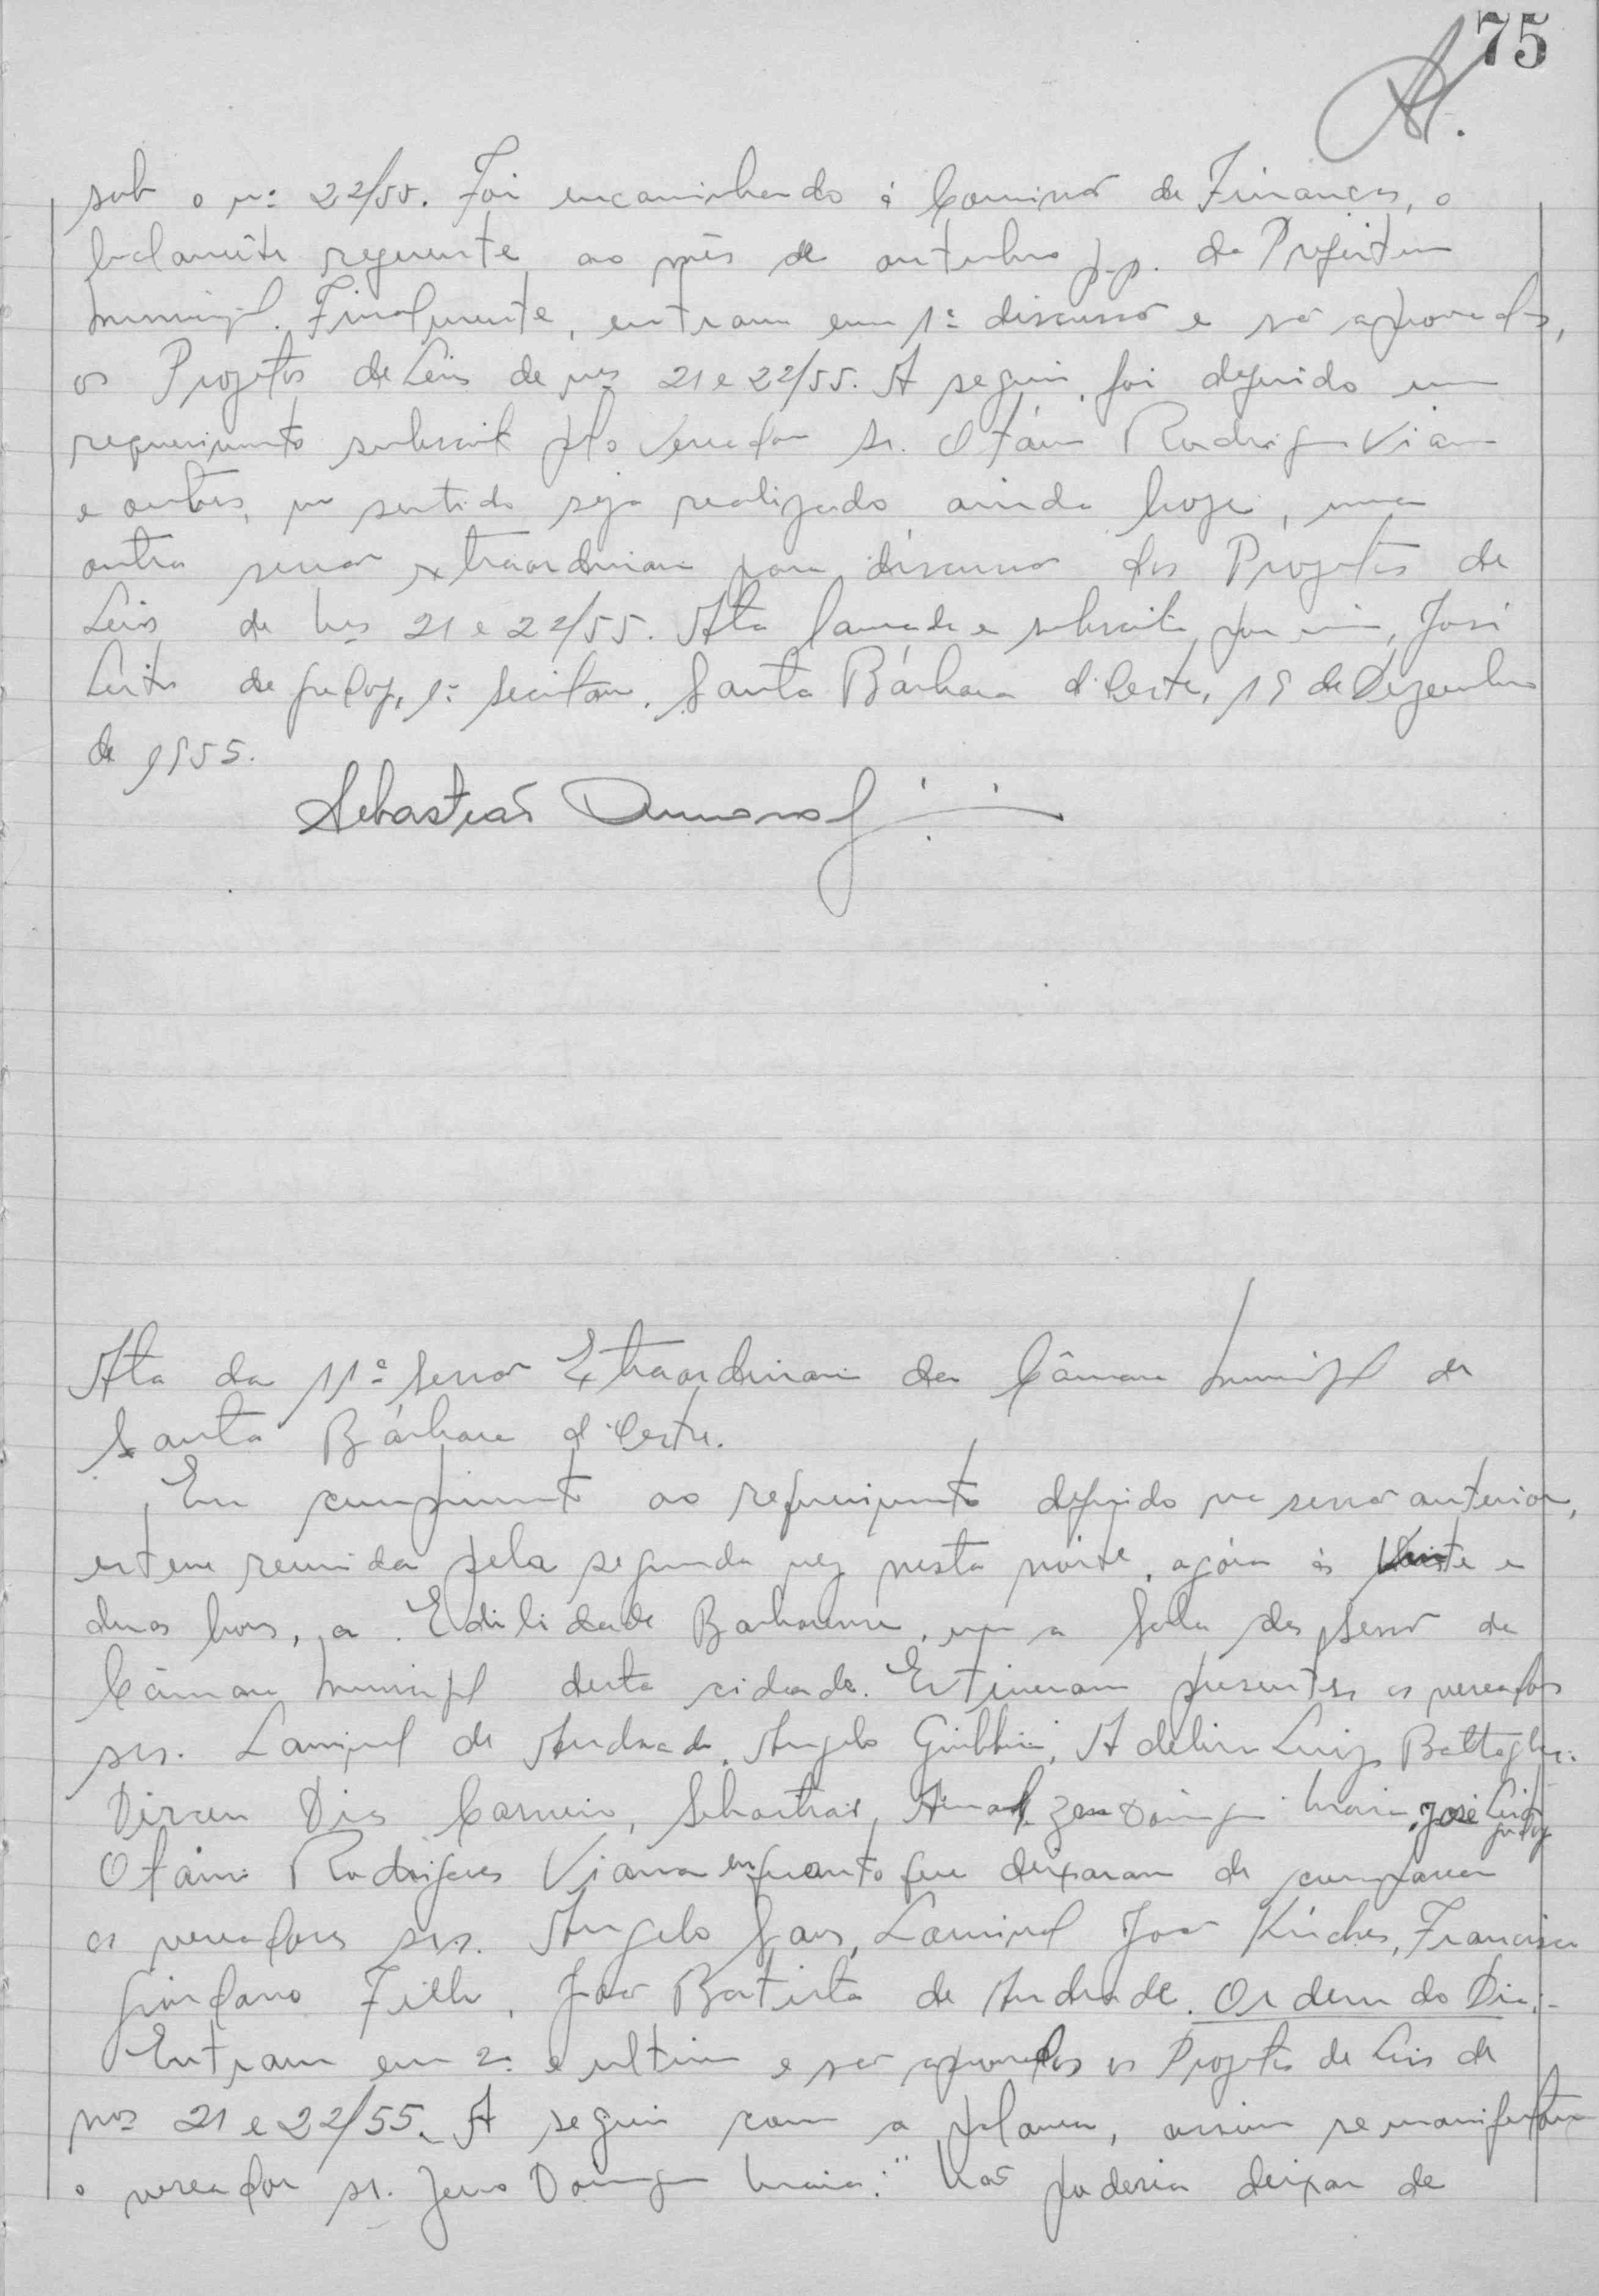 75
sub o nº 22/55. Foi encaminhado á Comissão de Finanças, o
balancête referente ao mês de outubro p.p. da Prefeitura
Municipal. Finalmente, entram em 1ª discussão e são aprovados,
os Projetos de Leis de nºs 21 e 22/55. A seguir, foi deferido um
requerimento subscrito pelo vereador sr. Otávio Rodrigues Viana
e outros, no sentido seja realizado ainda hoje, uma
outra sessão extraordinaria para discussão dos Projetos de
Leis de nºs 21 e 22/55. Ata lavrada e subscrita por mim, José
Leite de Godoy, 1º secretario. Santa Bárbara d'Oeste, 19 de Dezembro
de 1955.
Sebastião
Ata da 11ª Sessão Extraordinaria da Câmara Municipal de
Santa Bárbara d'Oeste.
Em cumprimento ao requerimento deferido na sessão anterior,
esteve reunida pela segunda vez nesta noite, agóra ás vinte e
duas horas, a Edilidade Barbarense, em a Sala das Sessões da
Câmara Municipal desta cidade. Estiveram presentes os vereadores
srs. de Andrade, Angelo Giubbina, Adelino Luiz Battaglia
Dirceu Dias Carneiro, Sebastião Domingues Maia, José Leite Godoy
Otávio Rodrigues Viana enquanto que deixaram de comparecer
os vereadores srs. Angelo Sans, João Kúches, Francisco
Giordano Filho, João Batista de Andrade. Ordem do Dia:-
Entram em 2ª e ultima e são aprovados os Projetos de Leis de
nºs 21 e 22/55. A seguir com a palavra, assim se manifestou
o vereador sr. Domingues Maia: "Não poderia deixar de